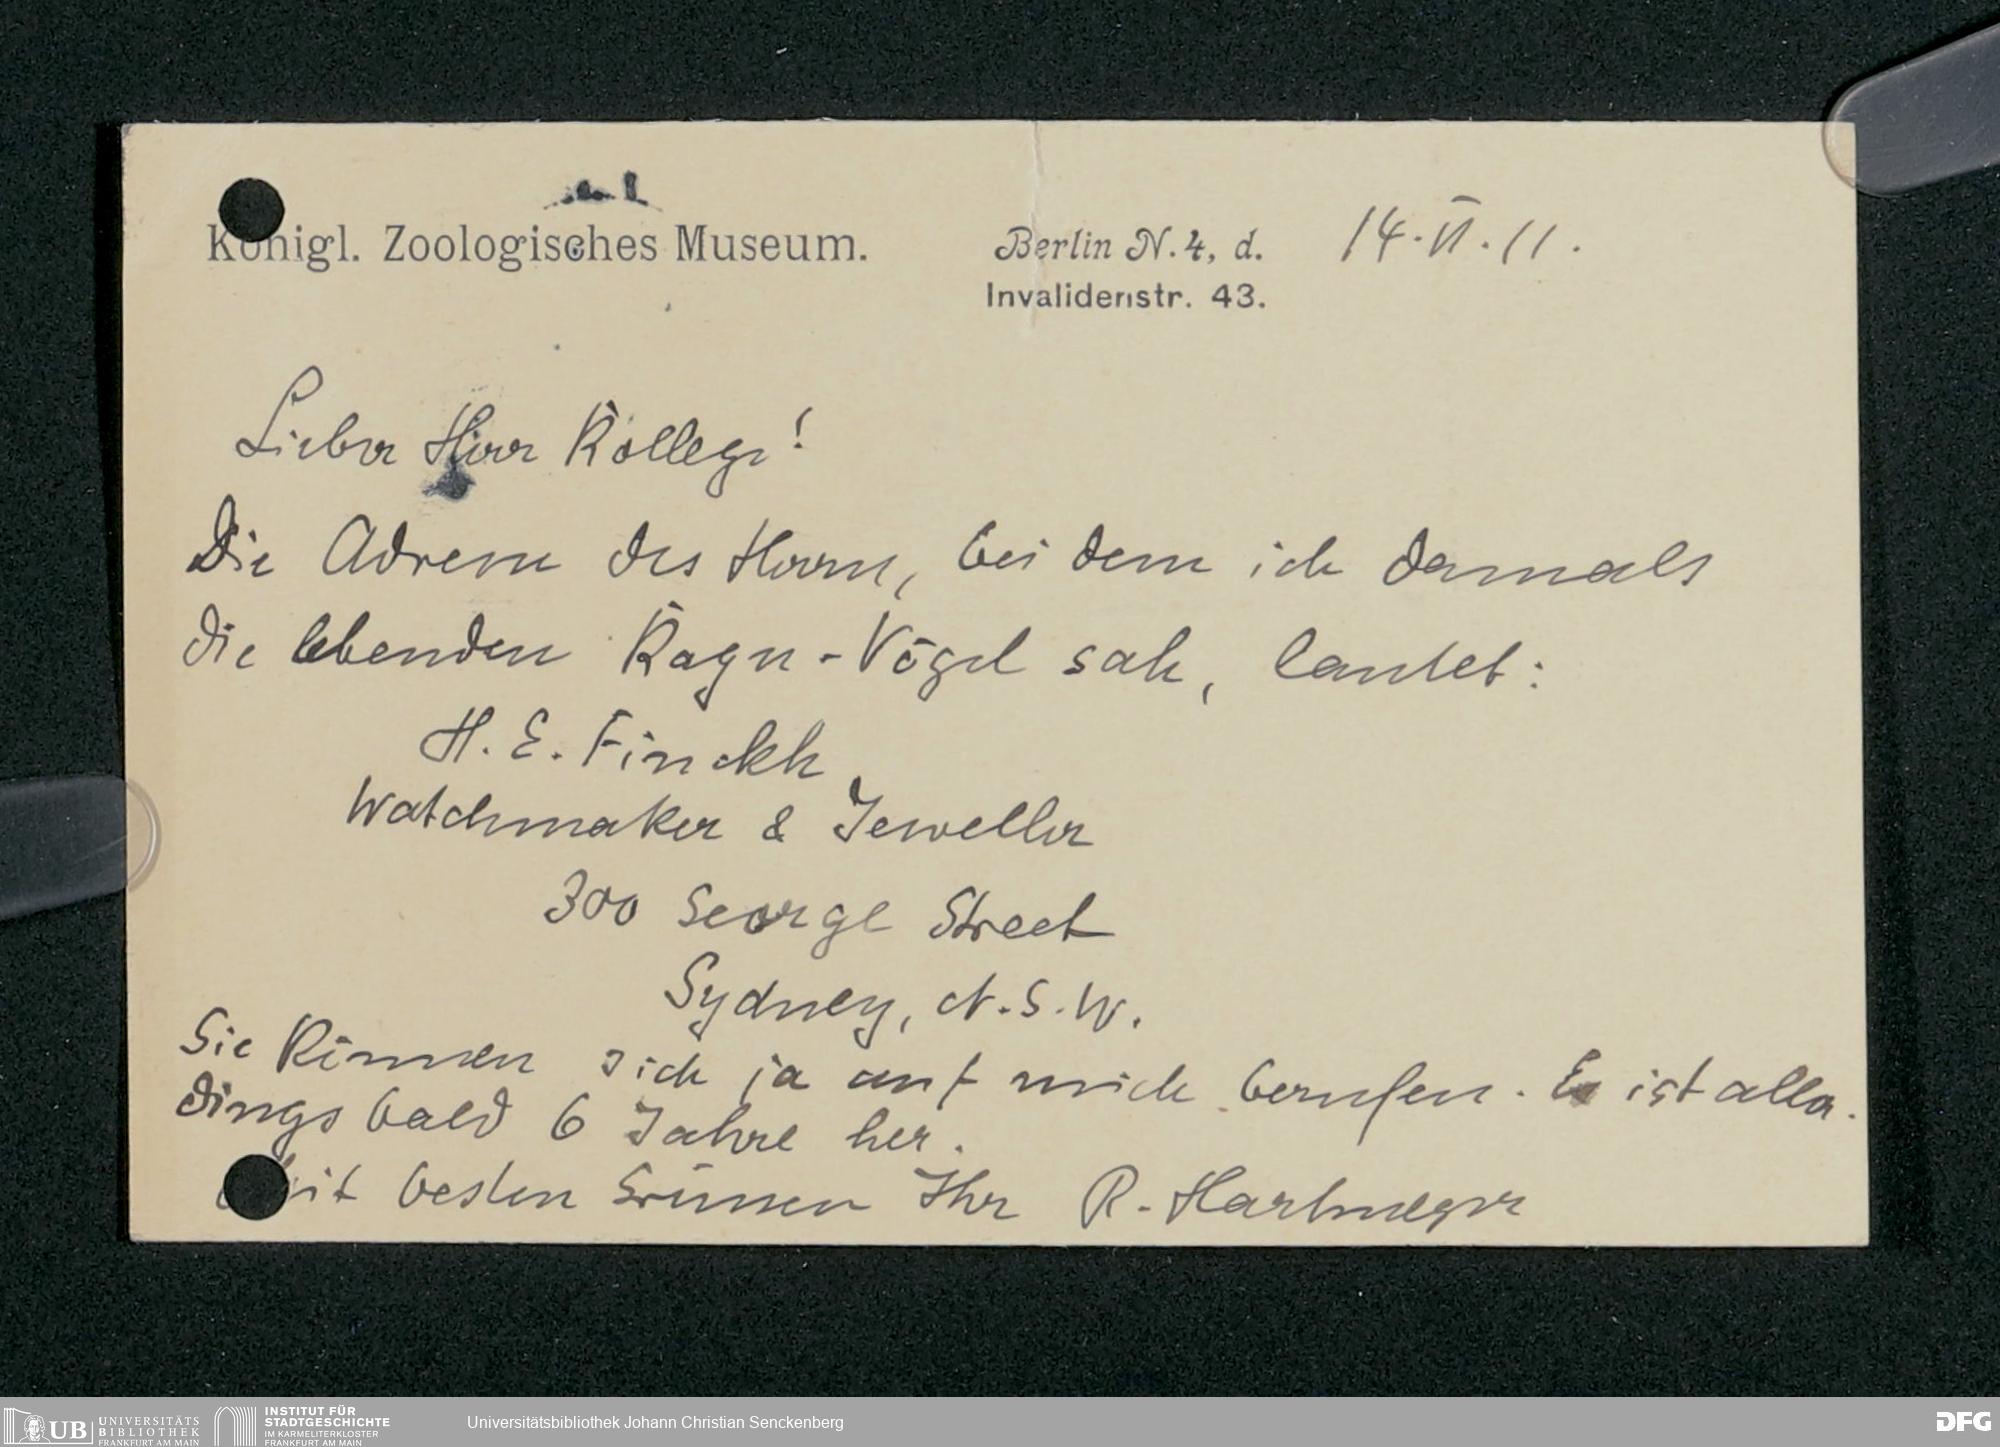 Königl. Zoologisches Museum.
Berlin N. 4, d. 14. VI. 11.
Invalidenstr. 43.
Lieber Herr Kollege!
Die Adresse des Herrn, bei dem ich damals
die lebenden Kagu-Vögel sah, lautet:
H. E. Finckh
Watchmaker & Jeweller
300 George Street
Sydney, N.S.W.
Sie können sich ja auf mich berufen. Es ist aller-
dings bald 6 Jahre her.
Mit besten Grüssen Ihr R. Hartmeyer
UB UNIVERSITÄTS
BIBLIOTHEK
FRANKFURT AM MAIN
INSTITUT FÜR
STADTGESCHICHTE
IM KARMELITERKLOSTER
FRANKFURT AM MAIN
Universitätsbibliothek Johann Christian Senckenberg
DFG